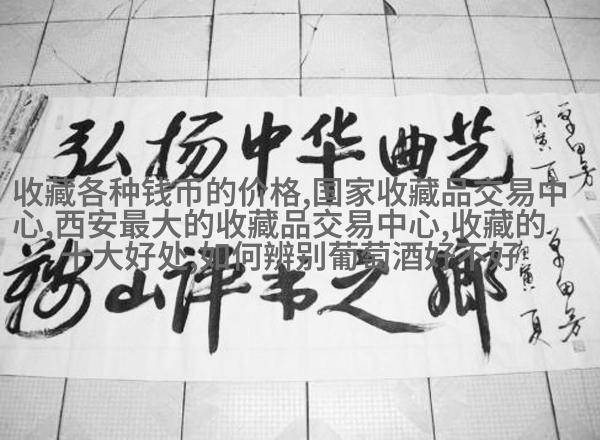 弘扬中华曲艺
庚寅 夏
单田芳
收藏各种钱币的价格,国家收藏品交易中
心,西安最大的收藏品交易中心,收藏的
十大好处,如何辨别葡萄酒好不好
鞍山评书之鄉
庚寅 夏
单田芳